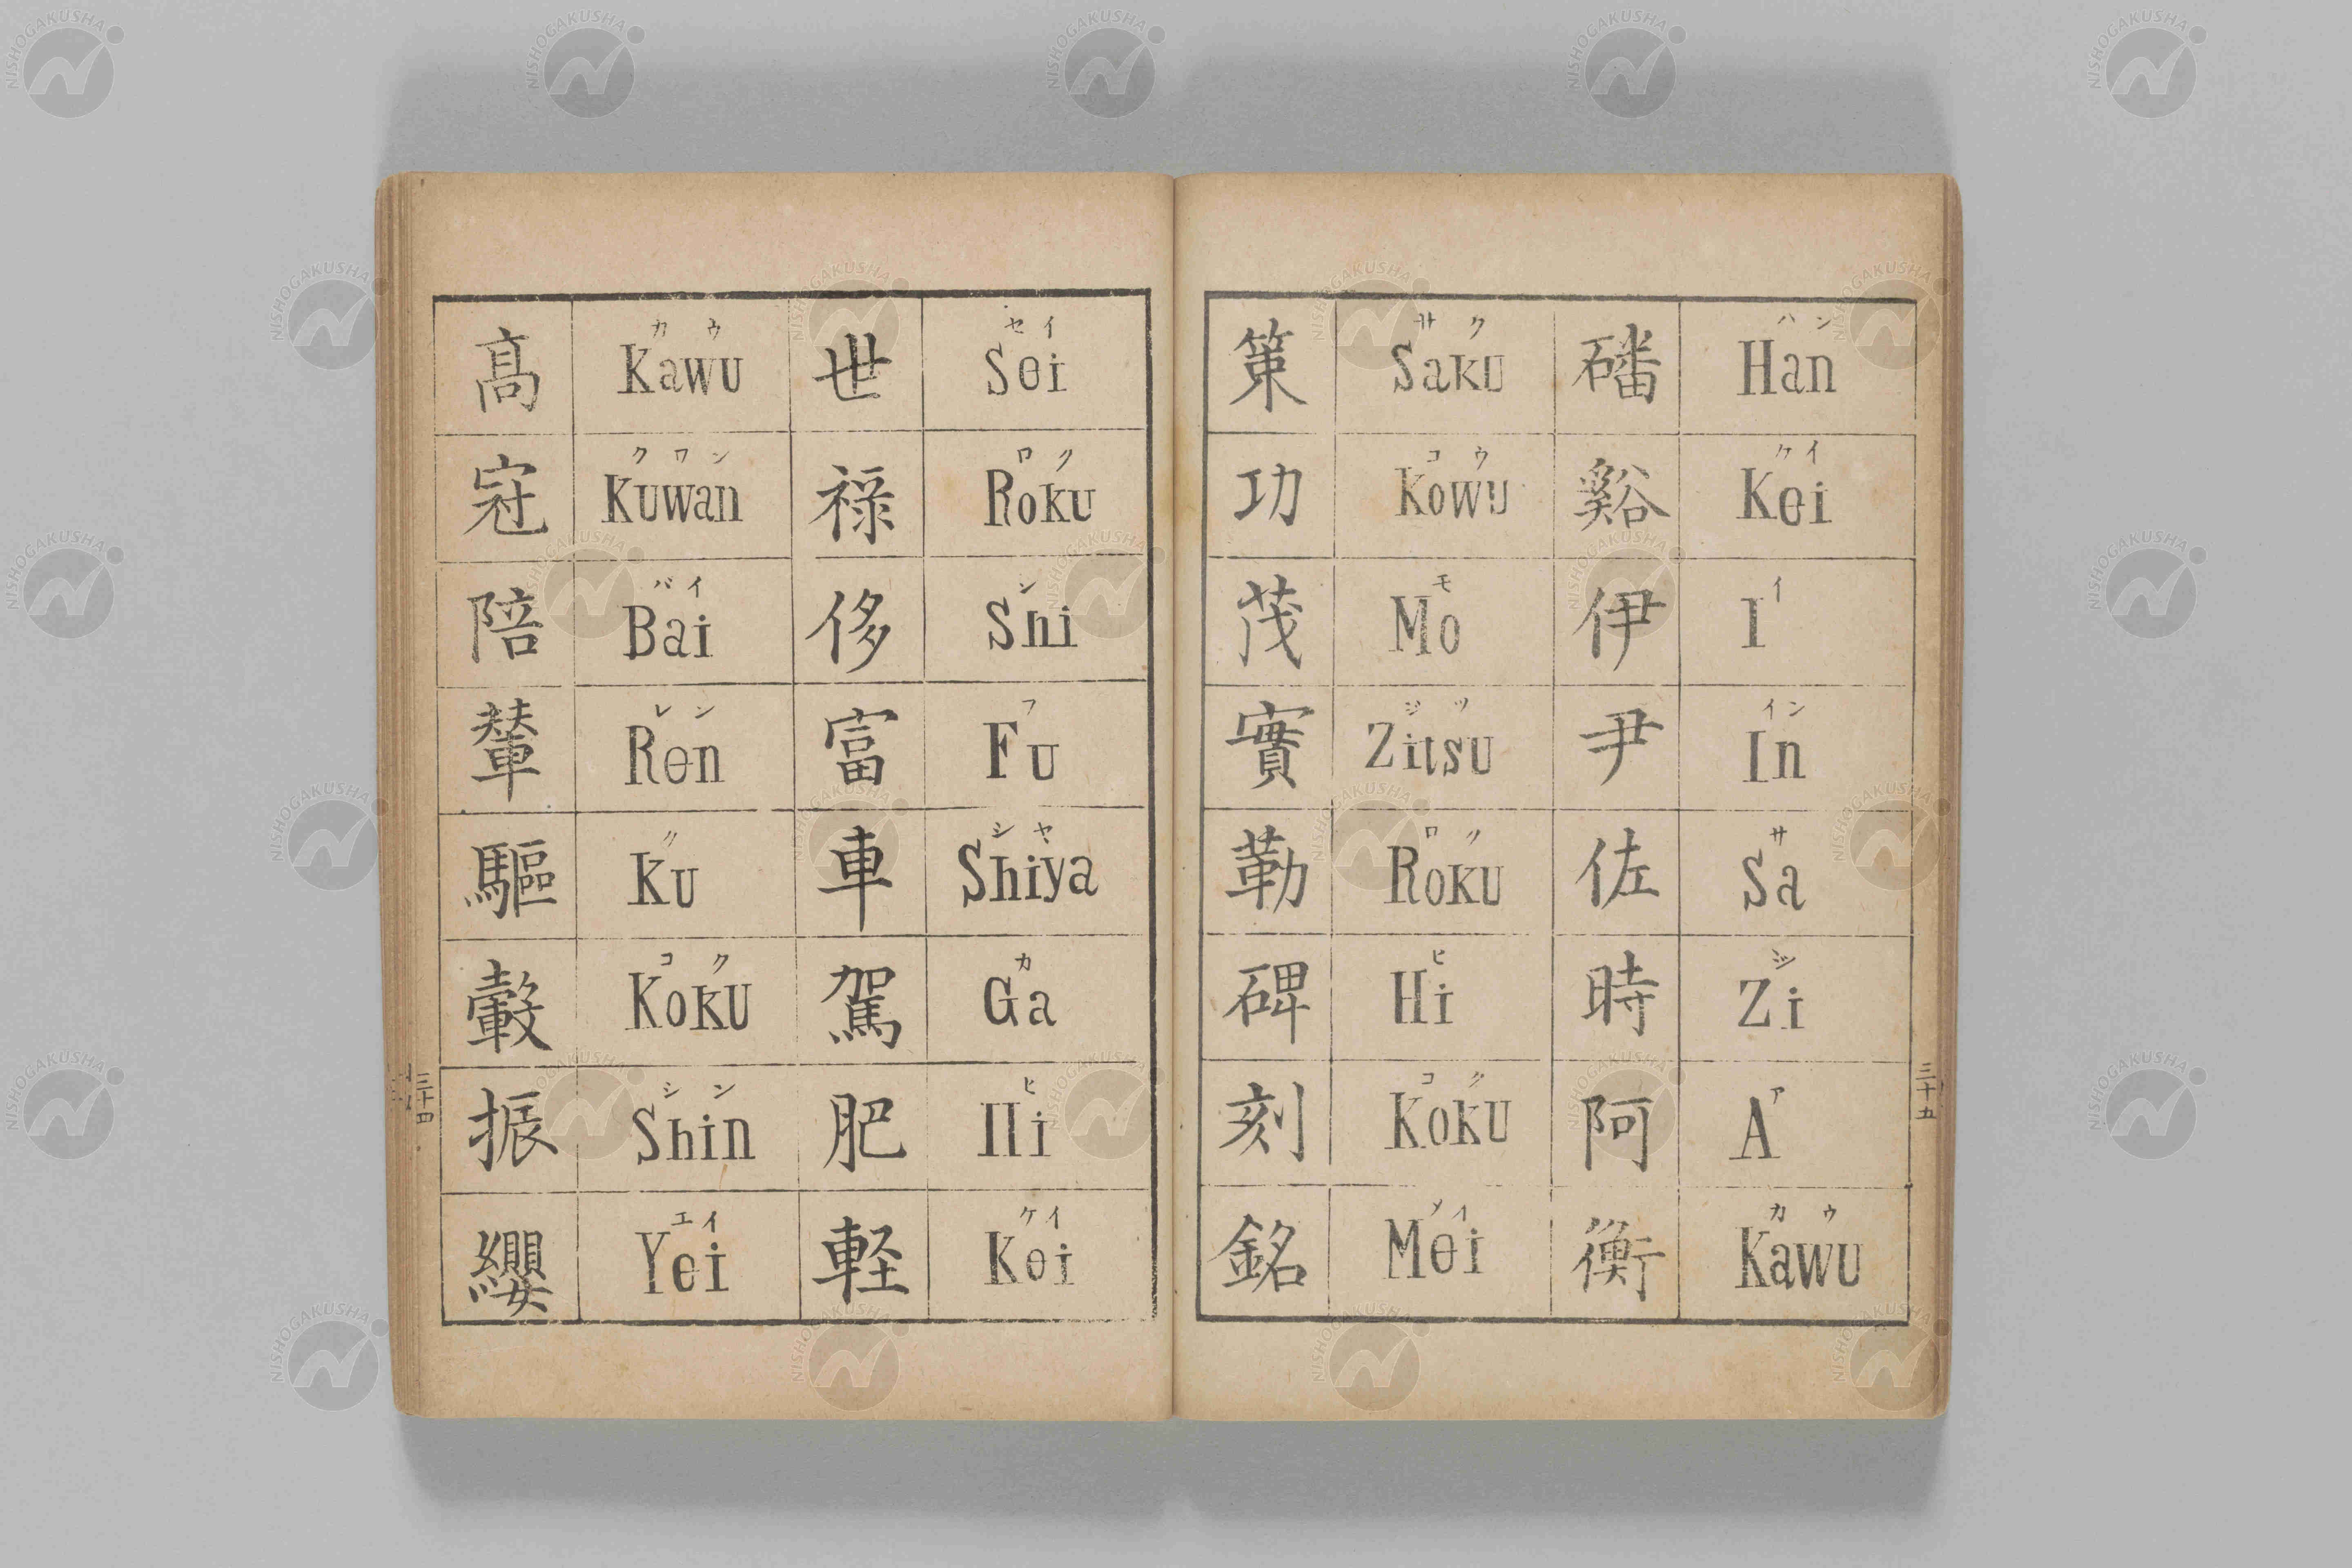 髙 カウ Kawu
冠 クワン Kuwan
陪 バイ Bai
輦 レン Ren
驅 ク Ku
轂 コク Koku
振 シン Shin
纓 エイ Yei
世 セイ Sei
禄 ロク Roku
侈 シ Shi
富 フ Fu
車 シヤ Shiya
駕 カ Ga
肥 ヒ Hi
軽 ケイ Kei
三十四
策 サク Saku
功 コウ Kowu
茂 モ Mo
實 ジツ Zitsu
勒 ロク Roku
碑 ヒ Hi
刻 コク Koku
銘 メイ Mei
磻 ハン Han
谿 ケイ Kei
伊 イ I
尹 イン In
佐 サ Sa
時 ジ Zi
阿 ア A
衡 カウ Kawu
三十五
NISHOGAKUSHA